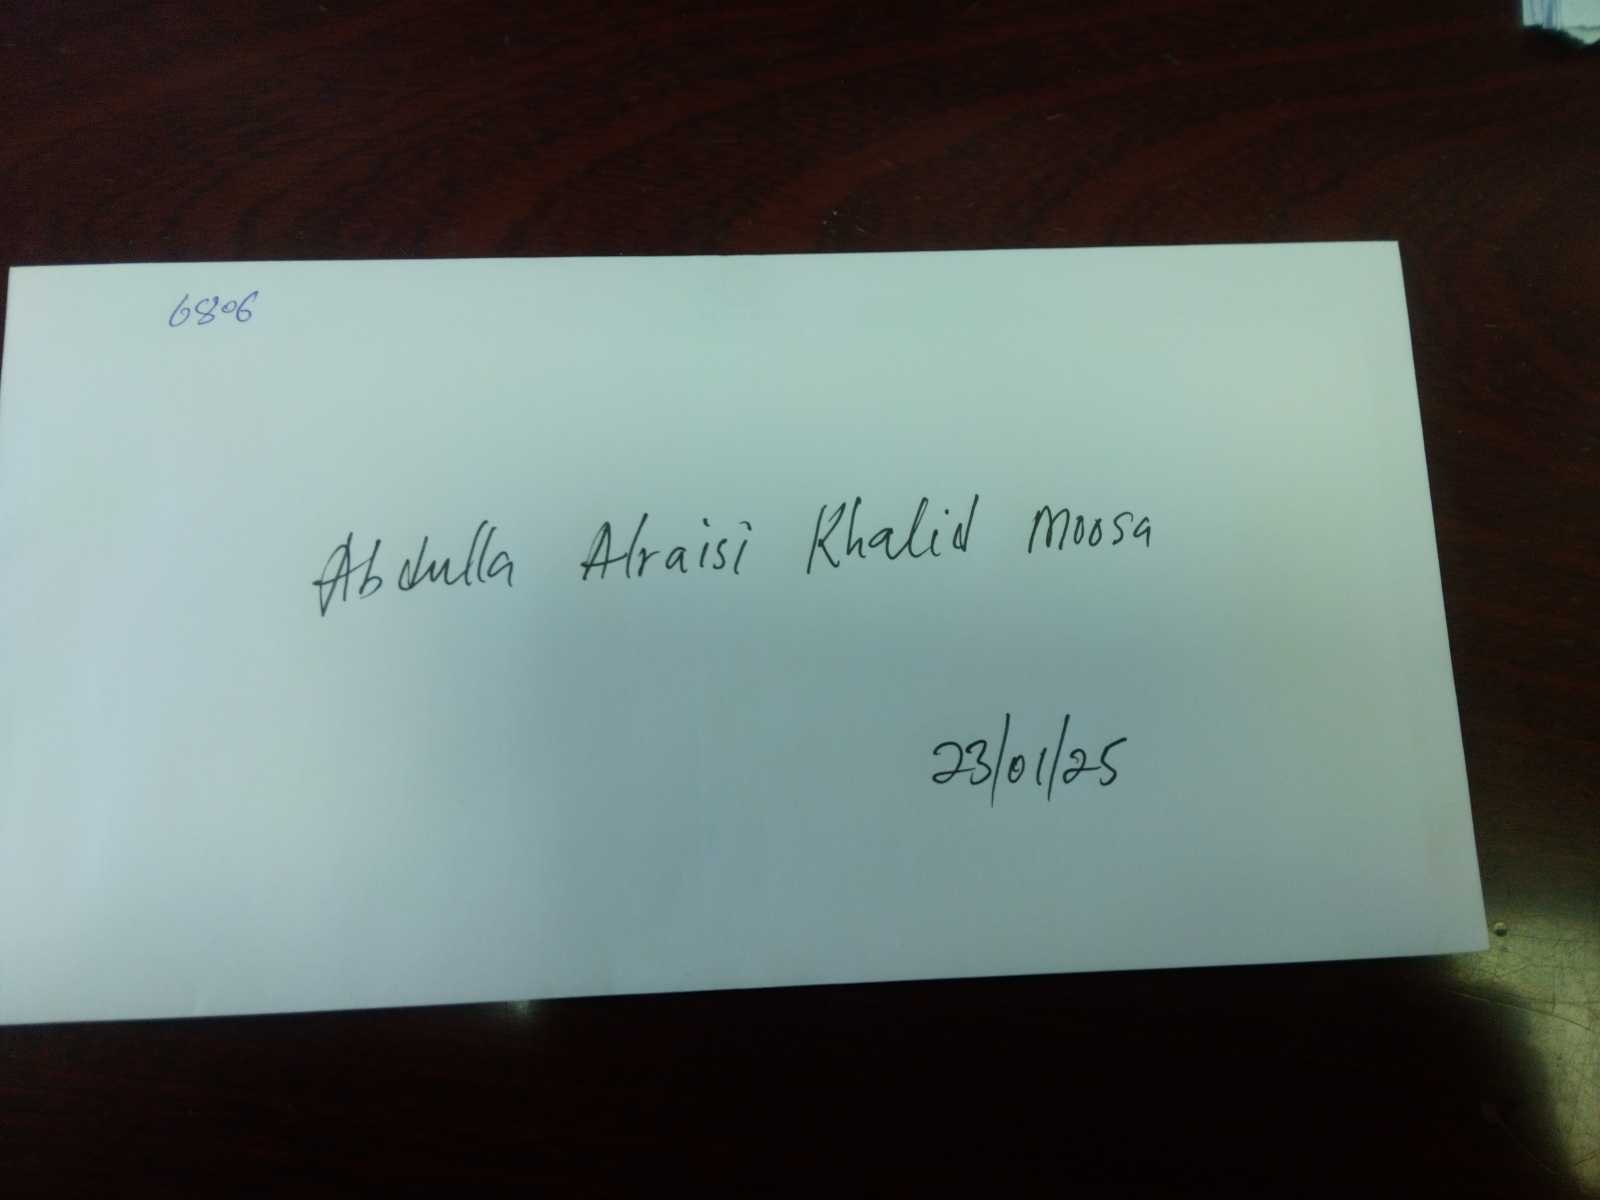 6806
Abdulla Alraisi Khalid Moosa
23/01/25